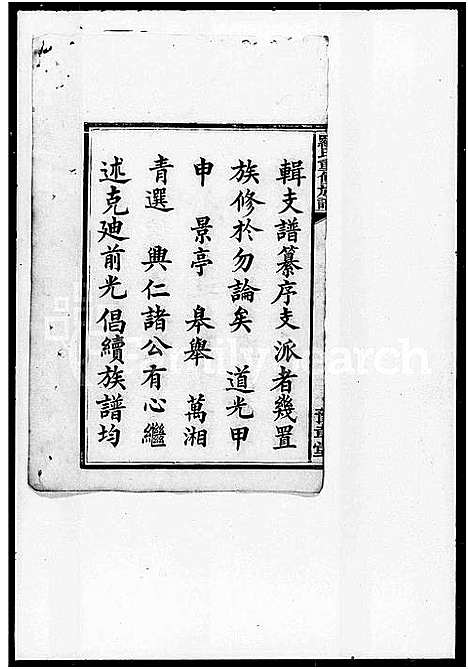 羅氏重修族譜
輯支譜纂序支派者幾置
族修於勿論矣 道光甲
申 景亭 皋舉 萬湘
青選 興仁諸公有心繼
述克廸前光倡續族譜均
豫章堂
FamilySearch